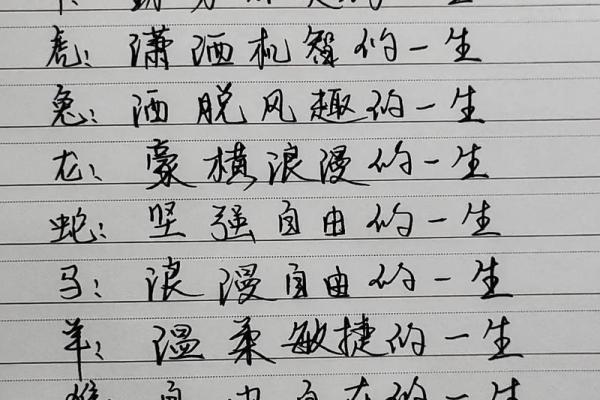 虎：潇洒机智的一生
兔：洒脱风趣的一生
龙：豪横浪漫的一生
蛇：坚强自由的一生
马：浪漫自由的一生
羊：温柔敏捷的一生
猴：自由自在的一生